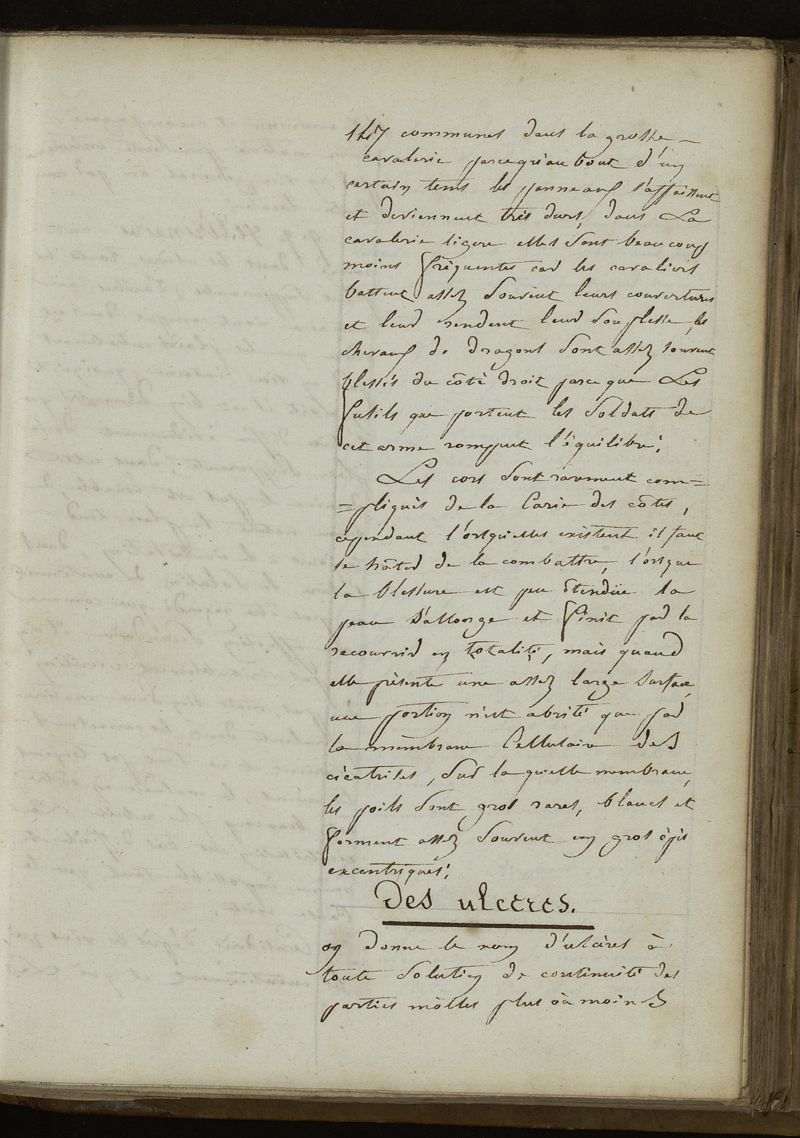 147 communes dans la grosse
cavalerie parcequ'au bout d'un
certain tems les panneaux s'affaissent
et deviennent très durs, dans La
cavalerie ligere elles sont beaucoup
moins fréquentes car les cavaliers
battent assez souvent leurs couvertures
et leur rendent leur souplesse, les
chevaux de dragons sont assez souvent
blessés du côté droit parce que Les
fusils que portent les soldats de
cet arme rompent l'équilibre;
Les cors sont rarement com=
=pliqués de la Carie des côtes,
cependant l'orsqu'elles existent il faut
se hâter de la combattre, l'orsque
la blessure est peu étendüe la
peau s'allonge et finit par la
recouvrir en totalité, mais quand
elle présente une assez large surface,
une portion n'est abrité que par
la membrane Cellulaire des
cicatrises, sur la quelle membrane,
les poils sont gros rares, blancs et
forment assez souvent un gros épis
excentriques;
Des ulceres.
on donne le nom d'ulcères à
toute solution de continuité des
parties môlles plus où moins